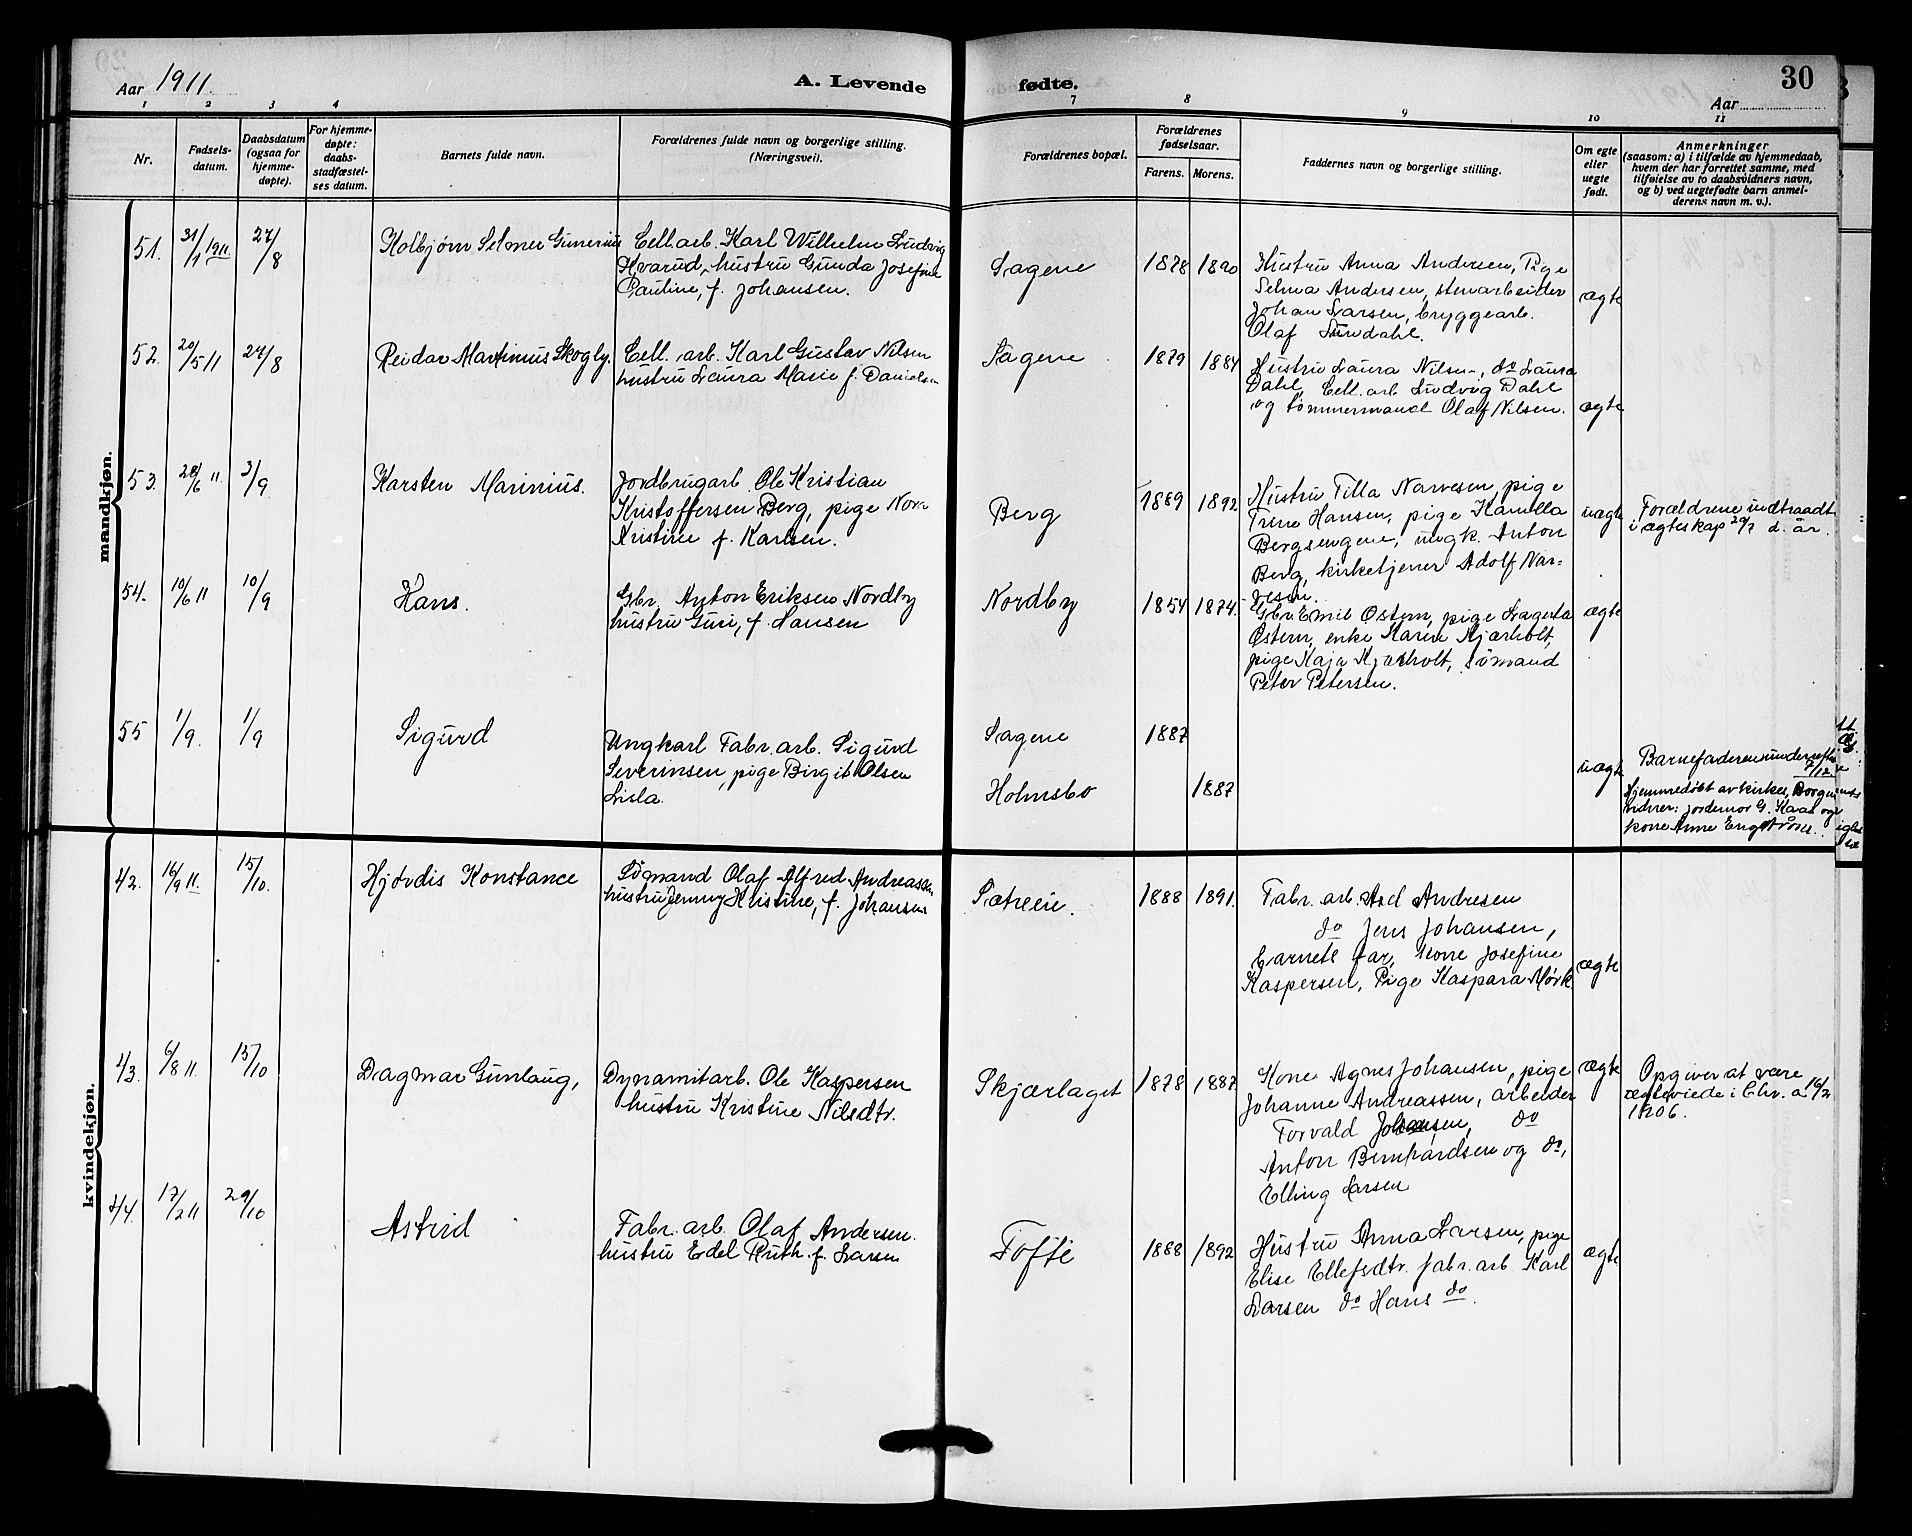 Aar 1911.
A. Levende
fødte.
30
Aar
1 2 3 4
7 8 9 10 11
Nr.
Fødsels-
datum.
Daabsdatum
(ogsaa for
hjemme-
døpte).
For hjemme-
døpte:
daabs-
stadfæstel-
ses datum.
Barnets fulde navn.
Forældrenes fulde navn og borgerlige stilling.
(Næringsvei).
Forældrenes bopæl.
Forældrenes
fødselsaar.
Farens. Morens.
Faddernes navn og borgerlige stilling.
Om egte
eller
uegte
født.
Anmerkninger
(saasom: a) i tilfælde av hjemmedaab,
hvem der har forrettet samme, med
tilføielse av to daabsvidners navn,
og b) ved uegtefødte barn anmel-
derens navn m. v.).
mandkjøn.
51. 31/1 1911 27/8
Kolbjørn Selmer Gunerius
Cell. arb. Karl Wilhelm Ludvig
Kvarud, hustru Gunda Josefine
Pauline, f. Johansen.
Sagene
1878 1890
Hustru Anna Andersen, Pige
Selma Andersen, stenarbeider
Johan Larsen, bryggearb.
Olaf Sundahl.
ægte
52. 20/5 11 27/8
Reidar Martinius Skogly.
Cell. arb. Karl Gustav Nilsen
hustru Laura Marie f. Danielsen
Sagene
1879 1884
Hustru Laura Nilsen, do Laura
Dahl, Cell. arb Ludvig Dahl
og tømmermand Olaf Nilsen.
ægte
53. 28/6 11. 3/9
Karsten Marinius.
Jordbrugarb. Ole Kristian
Kristoffersen Berg, pige Nora
Kristine f. Karlsen.
Berg
1889 1892
Hustru Tilla Narvesen, pige
Trine Hansen, pige Kamilla
Bergsengene, ungk. Anton
Berg, kirketjener Adolf Nar=
vesen.
uægte
Forældrene indtraadt
i ægteskap 29/7 d. år.
54. 10/6 11 10/9
Hans.
Gbr. Anton Eriksen Nordby
hustru Guri, f. Hansen
Nordby
1854 1874.
Gbr. Emil Østern, pige Lagerta
Østern, enke Karen Kjærholt,
pige Kaja Kjærholt, Sömand
Peter Petersen.
ægte
55 1/9. 1/9
Sigurd
Ungkarl Fabr. arb. Sigurd
Severinsen, pige Birgit Olsen
Lisla.
Sagene
Holmsbo
1887
1887
uægte
Barnefaderen underrettet
7/12.
Hjemmedøbt av kirkes. Borgen
Vidner: jordemor G. Kaas og
kone Anne Engstrøm.
kvindekjøn.
42. 16/9 11. 15/10.
Hjørdis Konstance
Sømand Olaf Alfred Andreassen
hustru Jenny Kristine, f. Johansen
Sætreeie.
1888 1891.
Fabr. arb. Andresen
do Jens Johansen,
barnets far, kone Josefine
Kaspersen, Pige Kaspara Mørk
ægte
43. 6/8 11. 15/10
Dagmar Gunlaug,
Dynamitarb. Ole Kaspersen
hustru Kristine Nilsdtr.
Skjærlaget
1878 1887
Kone Agnes Johansen, pige
Johanne Andreassen, arbeider
Torvald Johansen, do
Anton Bernhardsen og do,
Elling Larsen
ægte
Opgiver at være
ægteviede i Chr. a 16/2
1906.
44. 17/2 11 29/10
Astrid
Fabr. arb. Olaf Andersen.
hustru Edel Ruth f. Larsen
Tofte
1888 1892
Hustru Anna Larsen, pige
Elise Ellefsdtr. fabr. arb. Karl
Larsen do Hans do.
ægte